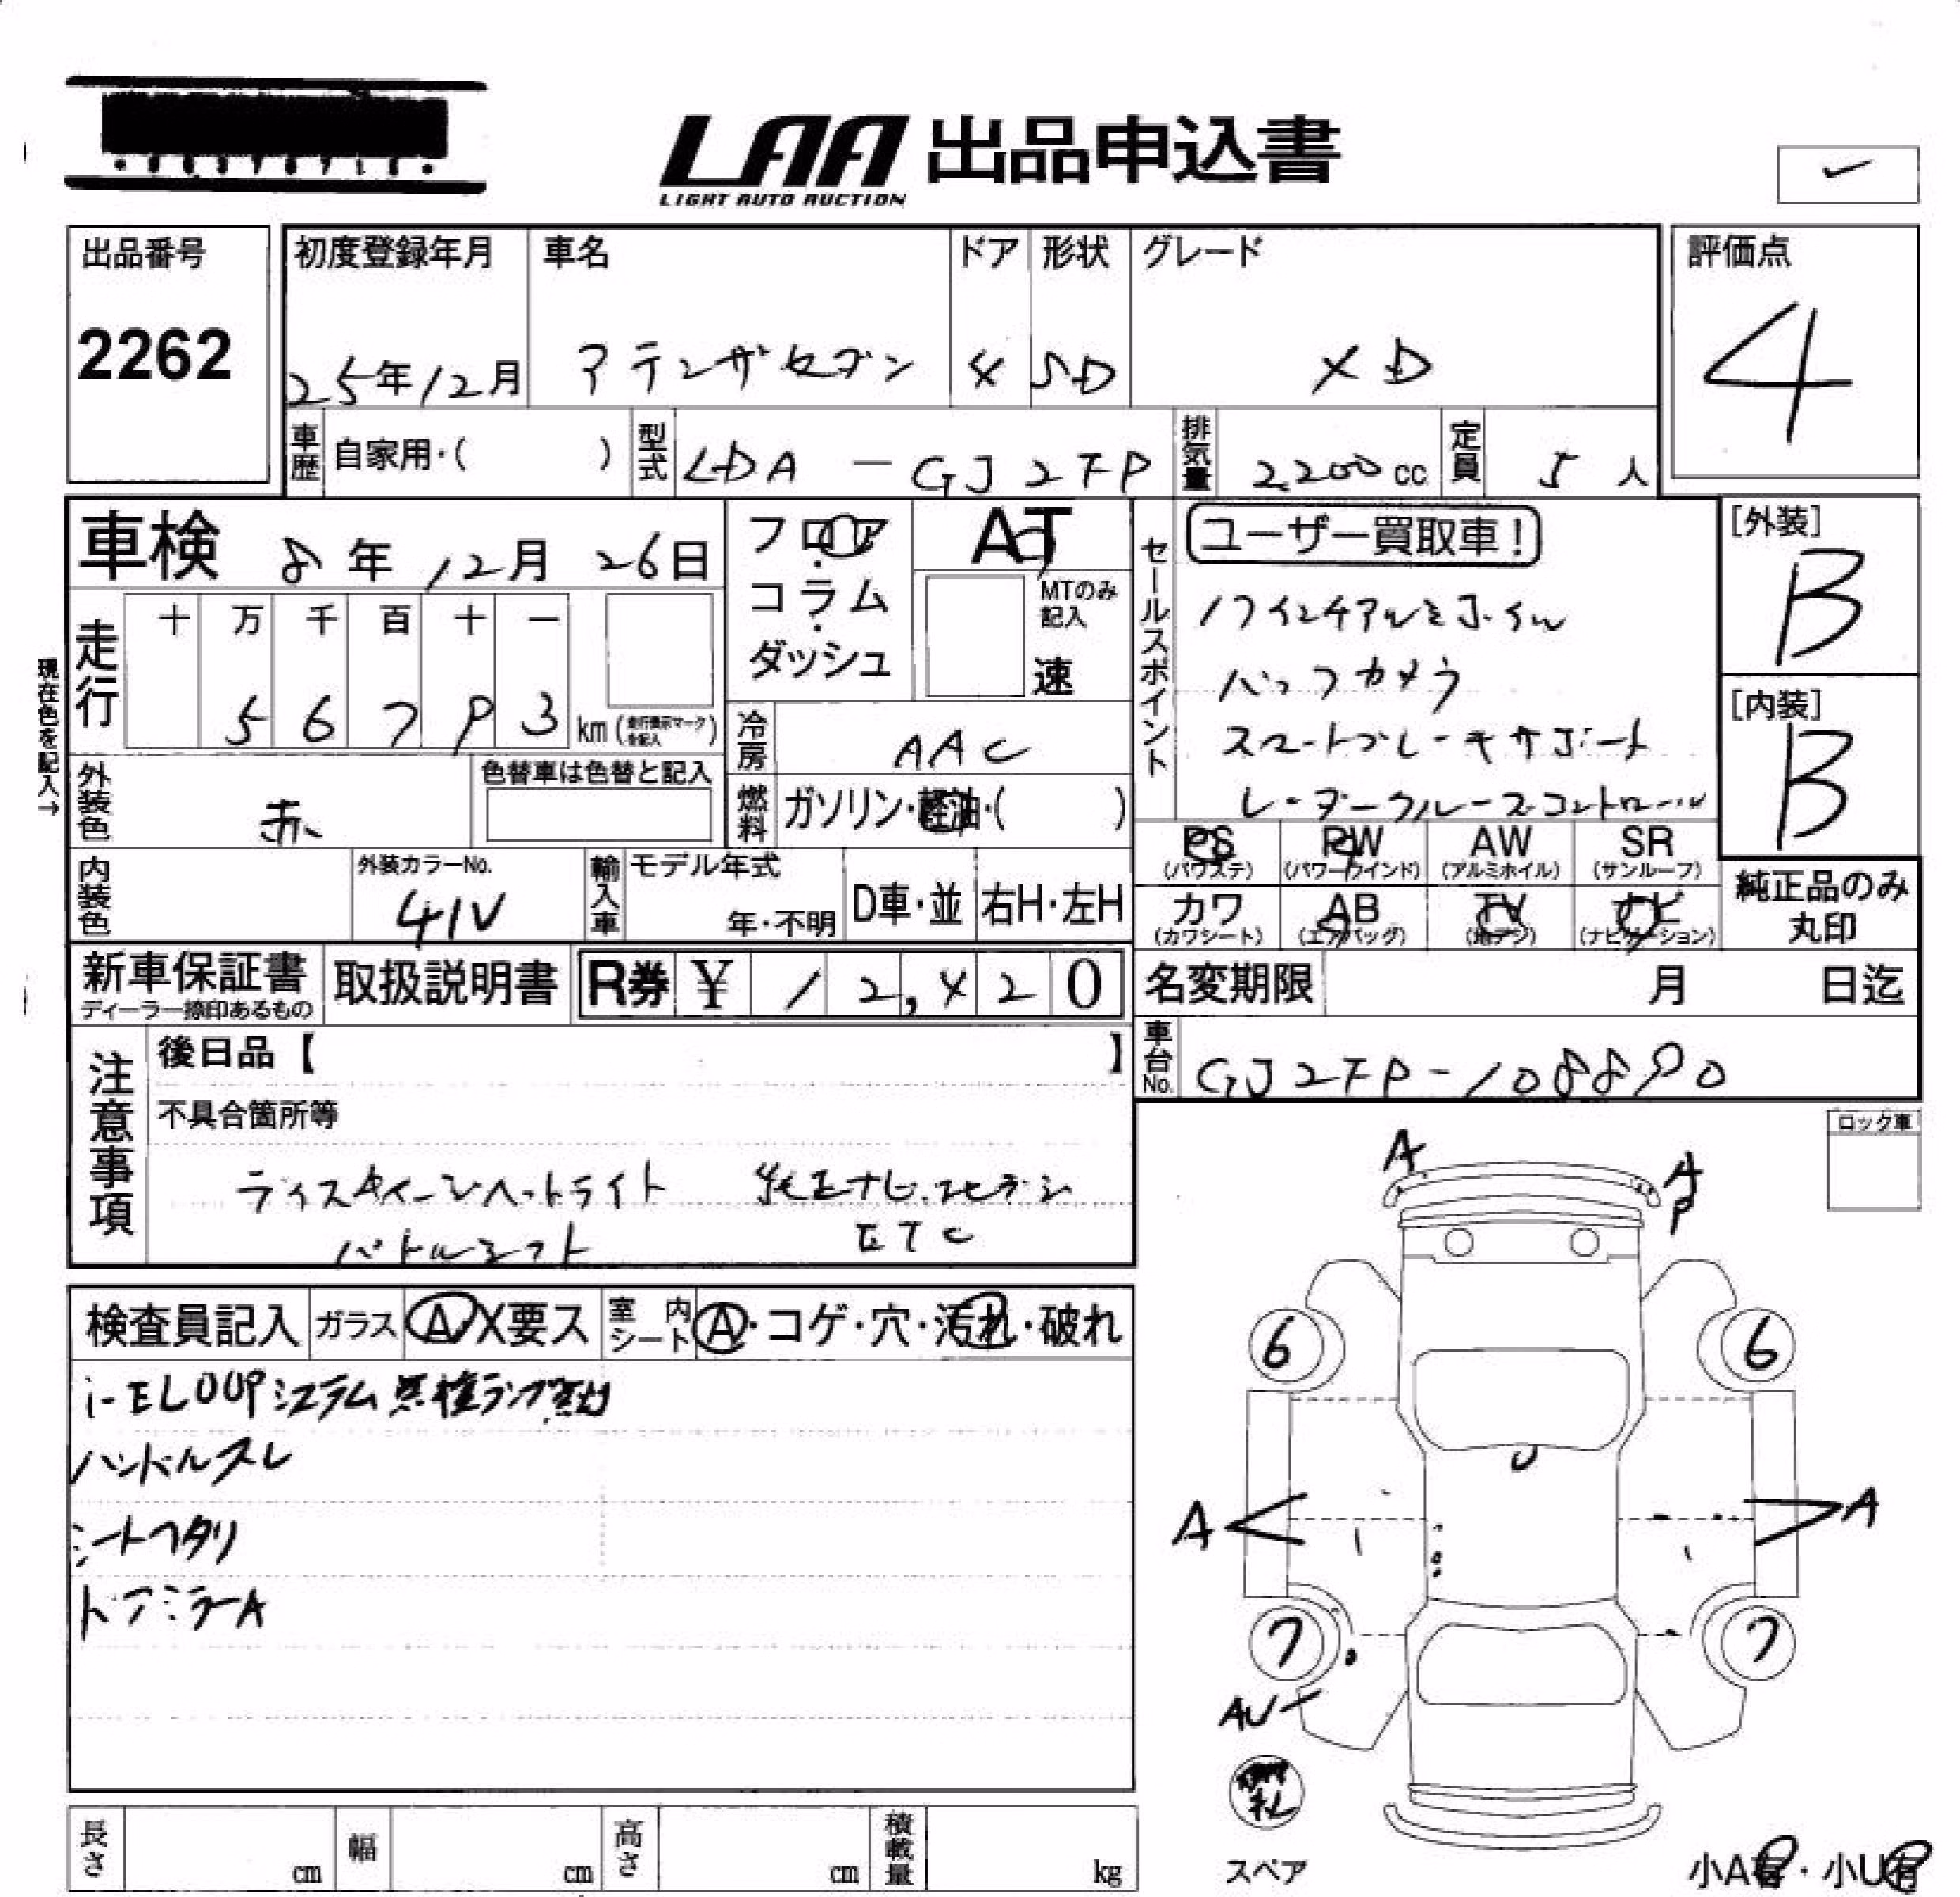 LAA 出品申込書
LIGHT AUTO AUCTION
出品番号
2262
初度登録年月
25年12月
車名
アテンザセダン
ドア
4
形状
SD
グレード
XD
評価点
4
車歴 自家用・( )
型式 LDA-GJ2FP
排気量 2200cc
定員 5人
車検 8年12月26日
フロア・コラム・ダッシュ
AT
MTのみ記入
速
走行 十 万 千 百 十 一
5 6 7 9 3 km (走行表示マークを記入)
現在色を記入→
外装色 赤
色替車は色替と記入
冷房 AAC
燃料 ガソリン・軽油・( )
内装色
外装カラーNo.
41V
輸入車 モデル年式
年・不明
D車・並
右H・左H
セールスポイント
ユーザー買取車!
17インチアルミホイル
バックカメラ
スマートブレーキサポート
レーダークルーズコントロール
[外装]
B
[内装]
B
PS (パワステ) PW (パワーウインド) AW (アルミホイル) SR (サンルーフ)
カワ (カワシート) AB (エアバッグ) TV (地デジ) ナビ (ナビゲーション)
純正品のみ丸印
新車保証書
ディーラー捺印あるもの
取扱説明書
R券 ¥ 12,420
名変期限 月 日迄
車台No. GJ2FP-108890
注意事項
後日品【 】
不具合箇所等
ディスチャージヘットライト 純正ナビ.フルセグ
パドルシフト ETC
ロック車
検査員記入
ガラス A X要ス
室内シート A・コゲ・穴・汚れ・破れ
i-ELOOPシステム点検ランプ点灯
ハンドルスレ
シートヘタリ
ドアミラーA
A
A
P
6
6
U
A
A
7
7
AU
スペア
小A有・小U有
長さ cm
幅 cm
高さ cm
積載量 kg